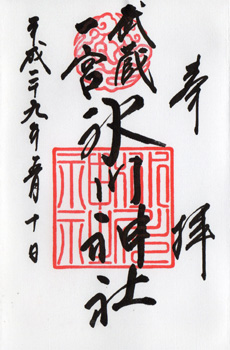 奉拝
武蔵
一宮
氷川神社
平成二十九年一月十日